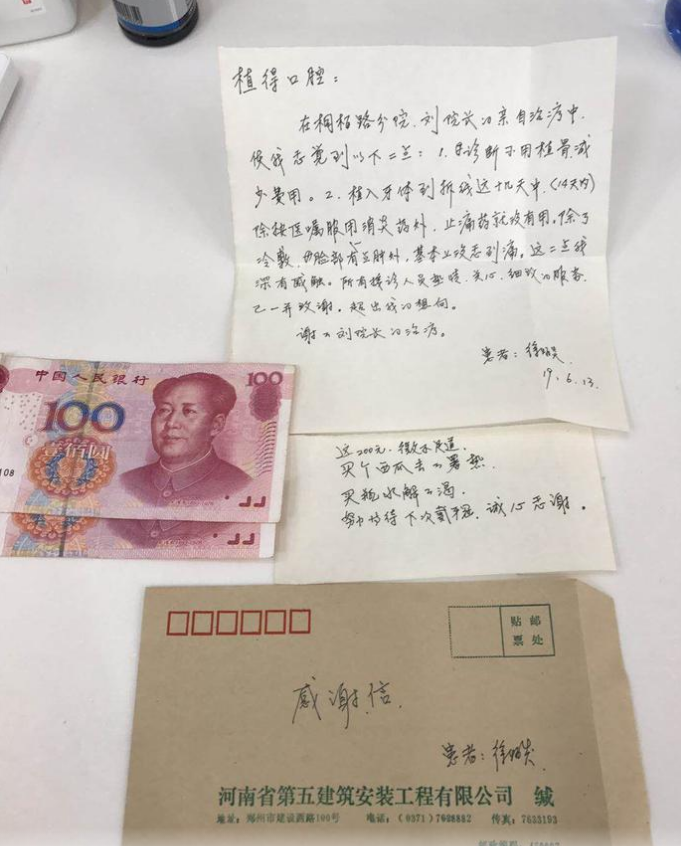 植得口腔：
在桐柏路分院，刘院长的亲自治疗中，
使我感觉到以下二点：1.早诊断不用植骨减
少费用。2.植入牙体到拆线这十几天中（14天内）
除按医嘱服用消炎药外，止痛药就没有用。除了
冷敷，脸部有点肿外，基本上没感到痛。这二点我
深有感触。所有接诊人员热情、关心、细致的服务
己一并致谢。超出我的想向。
谢了刘院长的治疗。
患者：徐
19.6.13.
中国人民银行
100
100
这200元，微不足道，
买个西瓜去了暑热
买瓶水解了渴，
努力均待下次戴牙冠，诚心感谢。
贴 邮
票 处
感谢信
患者：徐
河南省第五建筑安装工程有限公司 缄
地址：郑州市建设西路100号 电话：(0371)7638882 传真：7633193